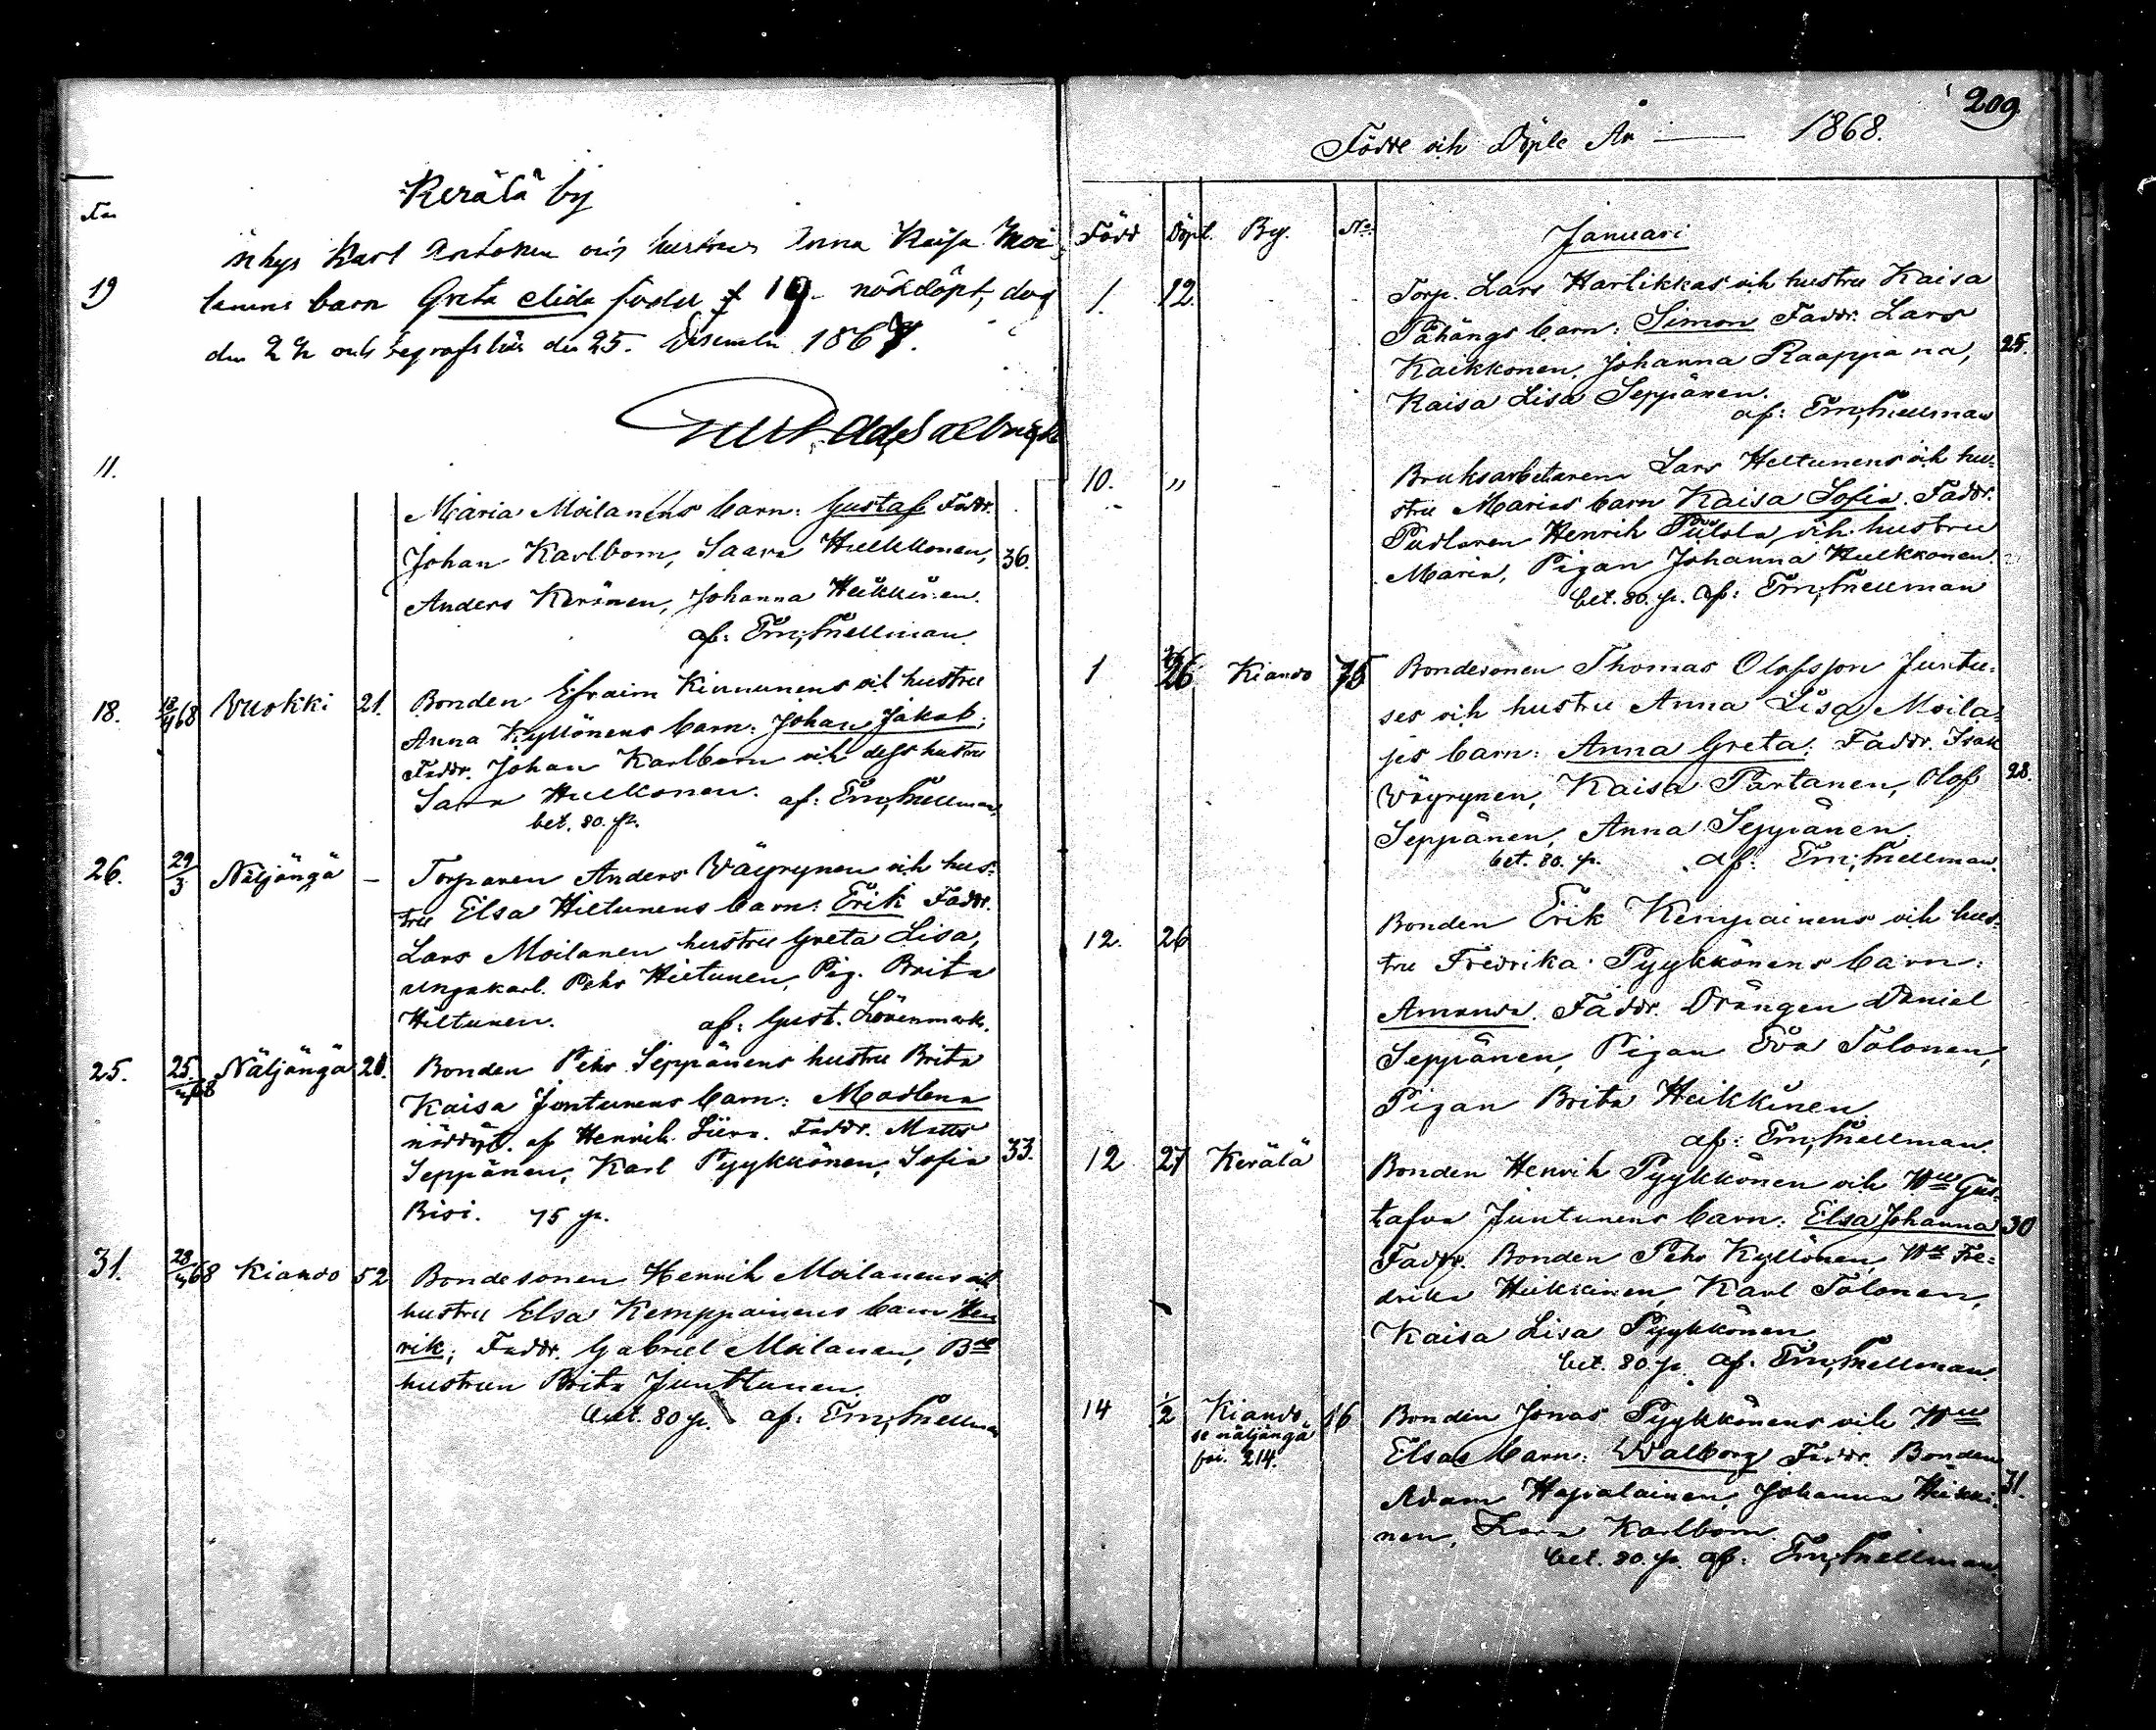 Kerälä by
inhys Karl Anttonen och hustrus Anna Kajsa Moi
lanens barn Greta Elida född 19 nöddöpt, dog
den 2 och begrafs här den 25. December 1867.
19
11.
Maria Moilanens barn: Gustaf Faddr.
Johan Karlbom, Saara Hulkkonen, 36.
Anders Keränen, Johanna Heikkinen.
af: Em; Snellman
18. 13/4 68 Vuokki 21. Bonden Efraim Kinnunens och hustru
Anna Kyllönens barn: Johan Jakob;
Faddr. Johan Karlbom och dess hustru
Sara Hulkonen. af: Em; Snellman,
bet. 80. p.
26. 29/3 Näljängä – Torparen Anders Väyrynen och hus-
tru Elsa Hiltunens barn: Erik Faddr.
Lars Moilanen hustru Greta Lisa,
ungakarl. Pehr Hiltunen, Pig. Brita
Hiltunen. af: Gust. Lönnmark.
25. 25./4 68 Näljängä 20. Bonden Pehr Seppänens hustru Brita
Kaisa Juntunens barn: Madlena
nöddöpt. af Henrik Liira. Faddr. Matts
Seppänen, Karl Pyykkönen, Sofia 33.
Bisi. 75 p.
31. 28/4 68 Kiando 52 Bondesonen Henrik Moilanens och
hustru Elsa Kemppainens barn Hen
rik; Faddr. Gabriel Moilanen, Bde
hustrun Brita Junttunen.
bet. 80 p. af: Em; Snellman
209
Födde och Döpte År — 1868.
Född Döpt. By. No.
Januari
1. 12. Torp. Lars Harlikkas och hustru Kaisa
Pähängs barn: Simon Faddr. Lars
Kaikkonen, Johanna Raappana, 25.
Kaisa Lisa Seppänen.
af: Em; Snellman
10. " Bruksarbetaren Lars Heltunens och hus-
tru Marias barn Kaisa Sofia. Faddr.
Pudlaren Henrik Piilola och hustru
Maria, Pigan Johanna Hulkkonen.
bet. 80. p. af: Em; Snellman
1 26 Kiando 75 Bondesonen Thomas Olofsson Juntu-
ses och hustru Anna Lisa Moila-
jes barn: Anna Greta: Faddr. Isak
Väyrynen, Kaisa Partanen, Olof 28.
Seppänen, Anna Seppänen.
bet. 80. p. af: Em; Snellman.
12. 26 Bonden Erik Kempainens och hus-
tru Fredrika Pyykkönens barn:
Amanda. Faddr. Drängen Daniel
Seppänen, Pigan Eva Tolonen,
Pigan Brita Heikkinen.
af: Em; Snellman.
12 27 Kerälä Bonden Henrik Pyykkönen och Hu Gus-
tafva Juntunens barn: Elsa Johanna 30
Faddr. Bonden Pehr Kyllönen, Hu Fre-
drika Heikkinen, Karl Tolonen,
Kaisa Lisa Pyykkönen.
bet. 80. p. af: Em; Snellman.
14 1/2 Kiando. 16 Bonden Jonas Pyykkönens och Hu
se näljängä
foi. 214.
Elsas barn: Walborg Faddr. Bonden
Adam Hapalainen, Johanna Heikki- 31.
nen, Karlbom.
bet. 80. p. af: Em; Snellman.